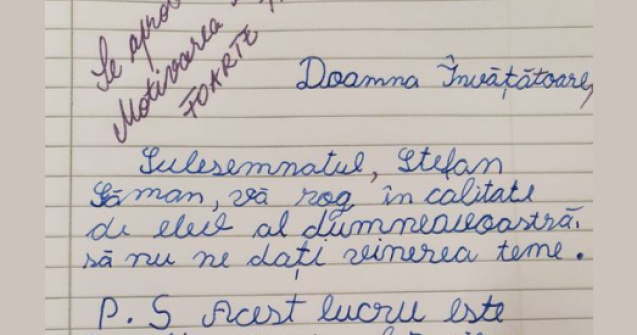 Se aprob
Motivarea
FOARTE
Doamna Învățătoare,
Subsemnatul, Ștefan
Săman, vă rog în calitate
de elev al dumneavoastră,
să nu ne dați vinerea teme.
P.S Acest lucru este